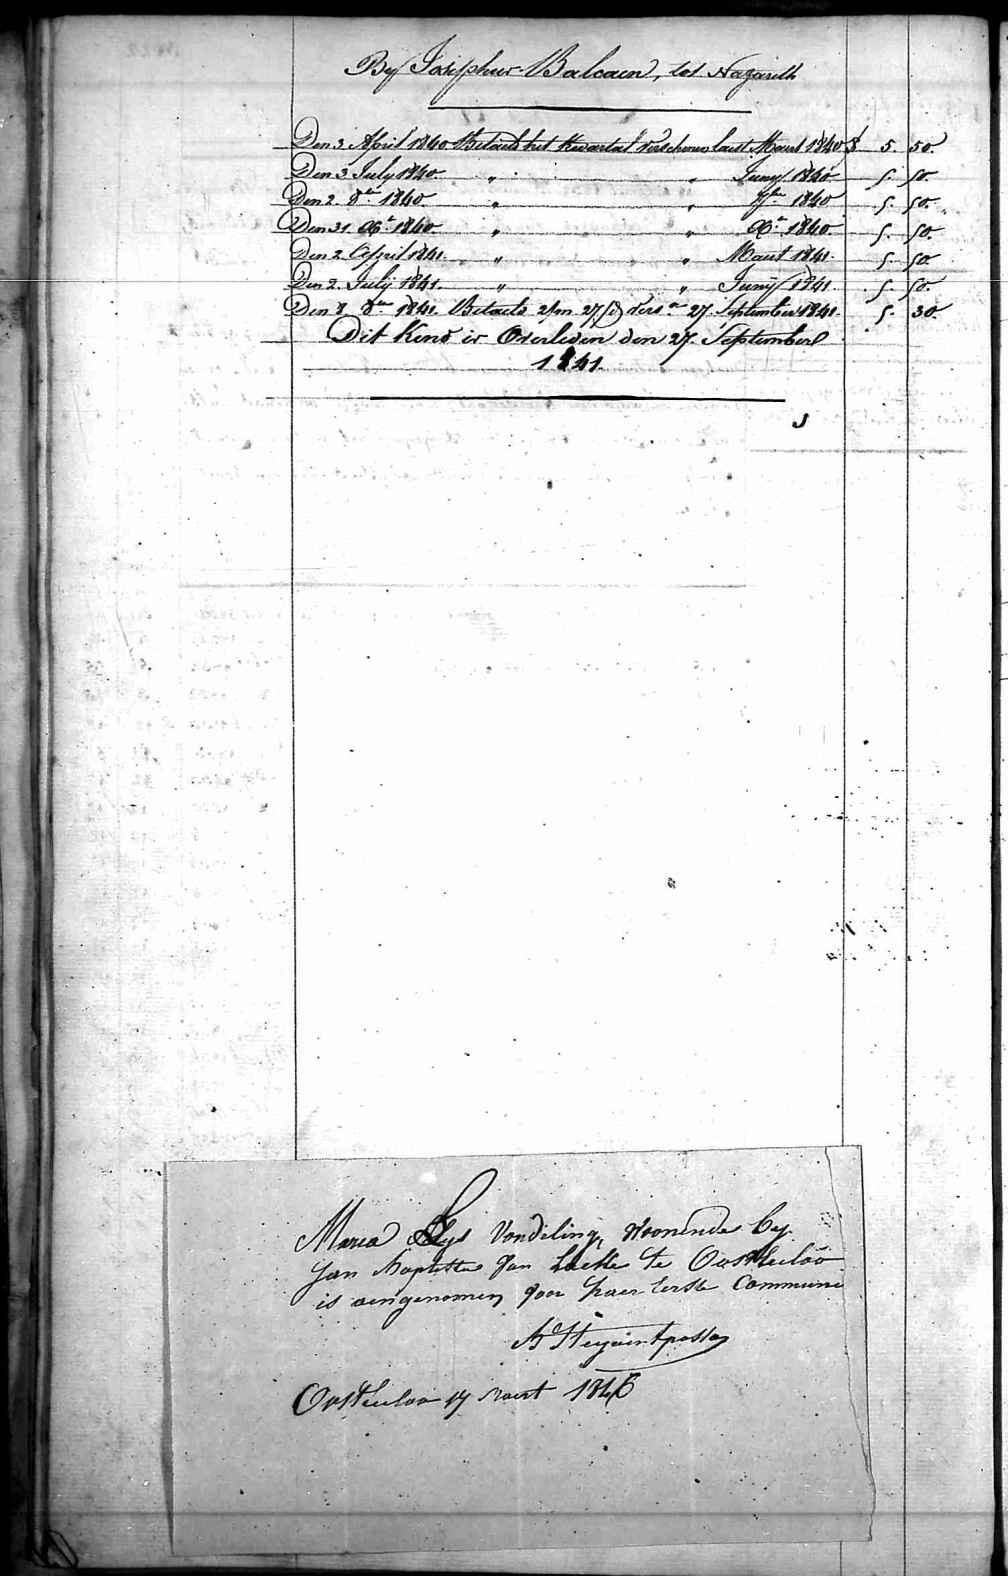 By Josephus Balcaen, tot Nazareth
Den 3 April 1840 Betaeld het Kwartael verschenen laest Maert 1840 f 5. 50.
Den 3 July 1840. " " Juny 1840 5. 50.
Den 2. 8ber 1840 " " 7ber 1840 5. 50.
Den 31 Xbr 1840. " " Xbr 1840 5. 50.
Den 2. April 1841. " " Maert 1841. 5. 50
Den 2. July 1841. " " Juny 1841 5. 50.
Den 8 8ber 1841. Betaeld 2/m 27/d vers en 27. September 1841. 5. 30.
Dit Kind is Overleden den 27. September
1841.
Maria Vondeling, Woonende by
Jan Baptiste Van te Oosteeloo
is aengenomen voor haer Eerste Communi
Oosteeloo 17 Maert 1846